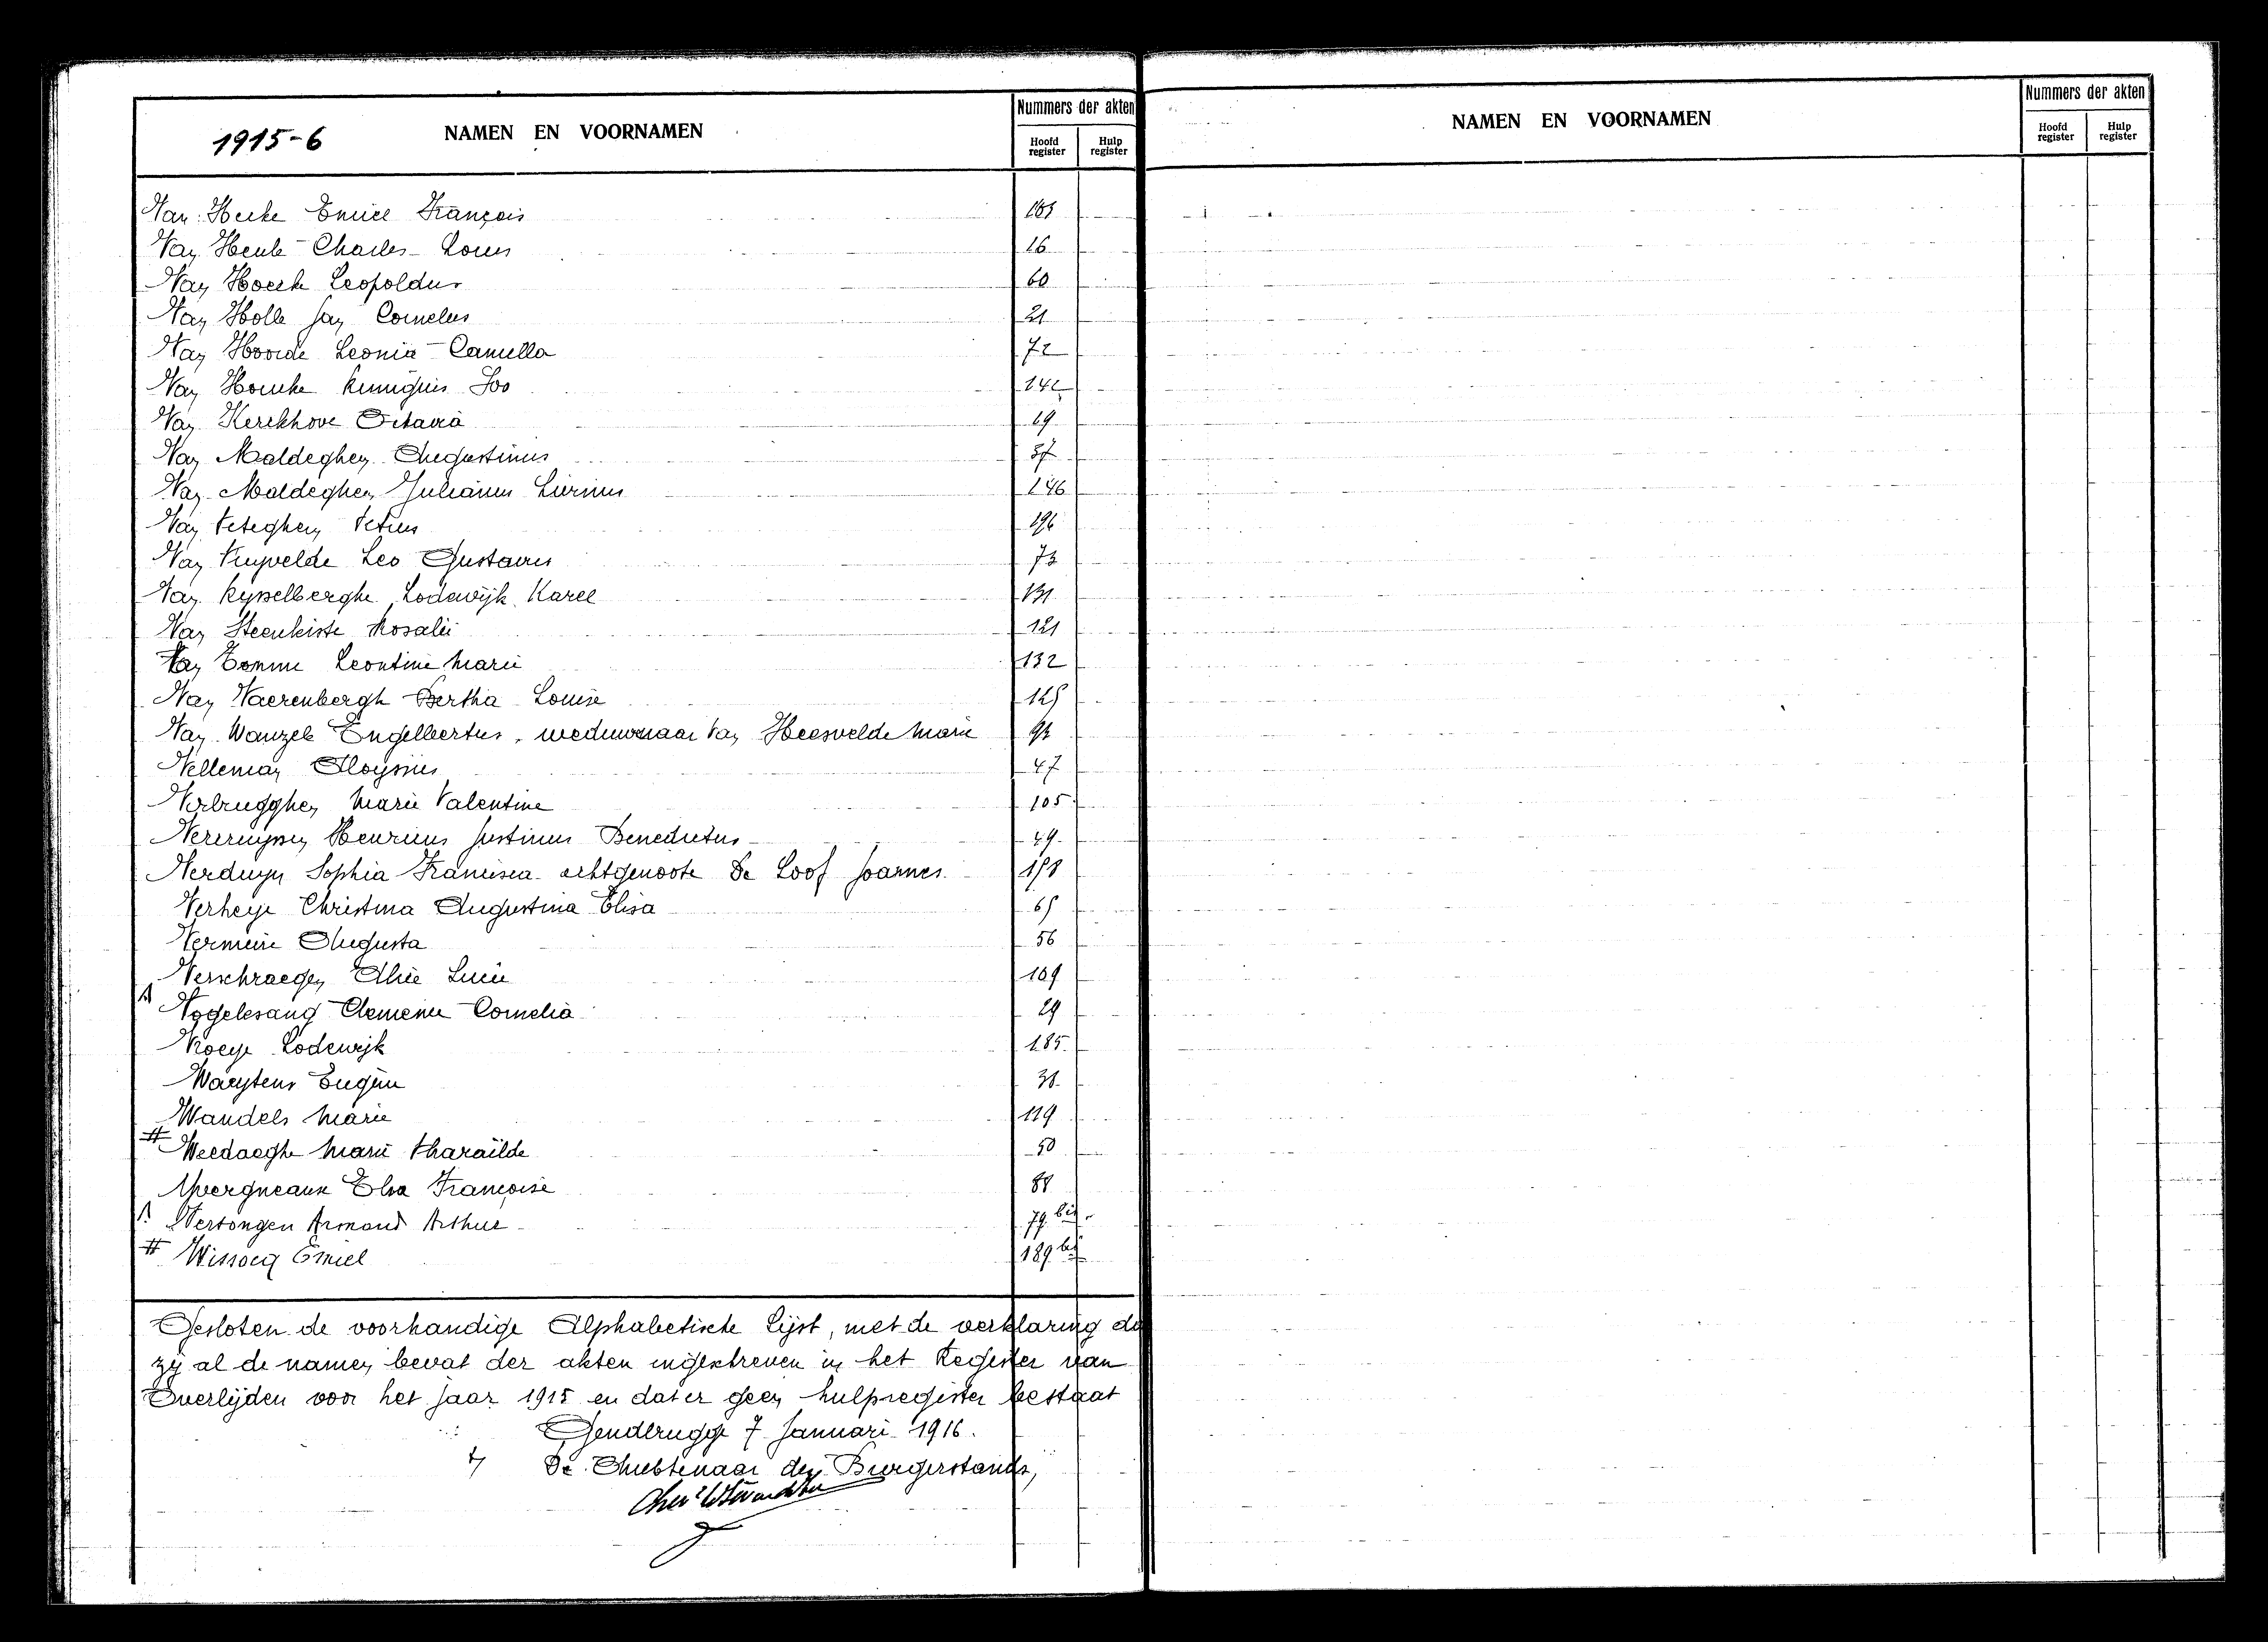 1915-6
NAMEN EN VOORNAMEN
Nummers der akten
Hoofd register
Hulp register
NAMEN EN VOORNAMEN
Nummers der akten
Hoofd register
Hulp register
Van Hecke Emiel François
Van Heule Charles-Louis 16
Van Hoecke Leopoldus 60
Van Holle Jan Cornelus 21
Van Hoorde Leonie-Camilla 72
Van 142
Van Kerckhove Octavia 19
Van Maldeghem Augustinus 37
Van Maldeghem Julianus Livinus 146
Van Peteghem Petrus 196
Van Puyvelde Leo Gustavus 73
Van Rysselberghe Lodewijk Karel 131
Van Steenkiste Rosalie 121
Van Tomme Leontine Marie 132
Van Vaerenbergh Bertha Louise 125
Van Wanzele Engelbertus, weduwnaar Van Heesvelde Marie
Velleman Aloysius 47
Verbrugghen Marie Valentine 105
Vercruyssen Henricus Justinus Benedictus 49
Verduyn Sophia Francisca echtgenoote De Loof Joannes
Verheye Christina Augustina Elisa 65
Vermeire Augusta 56
Verschraegen Alice Lucie 109
Vogelesang Clemence Cornelia 29
Vroeye Lodewijk 185
Waeytens Eugène 31
Wandels Marie 119
# Weedaeghe Marie Pharaïlde 50
Elisa Françoise 88
Vertongen Armand Arthur 79 bis
# Emiel 189 bis
Gesloten de voorhandige Alphabetische Lijst, met de verklaring da
zij al de namen bevat der akten ingeschreven in het Register van
Overlijden voor het jaar 1915 en dat er geen hulpregister bestaat
Gendbrugge 7 Januari 1916.
De Ambtenaar den Burgerstands,